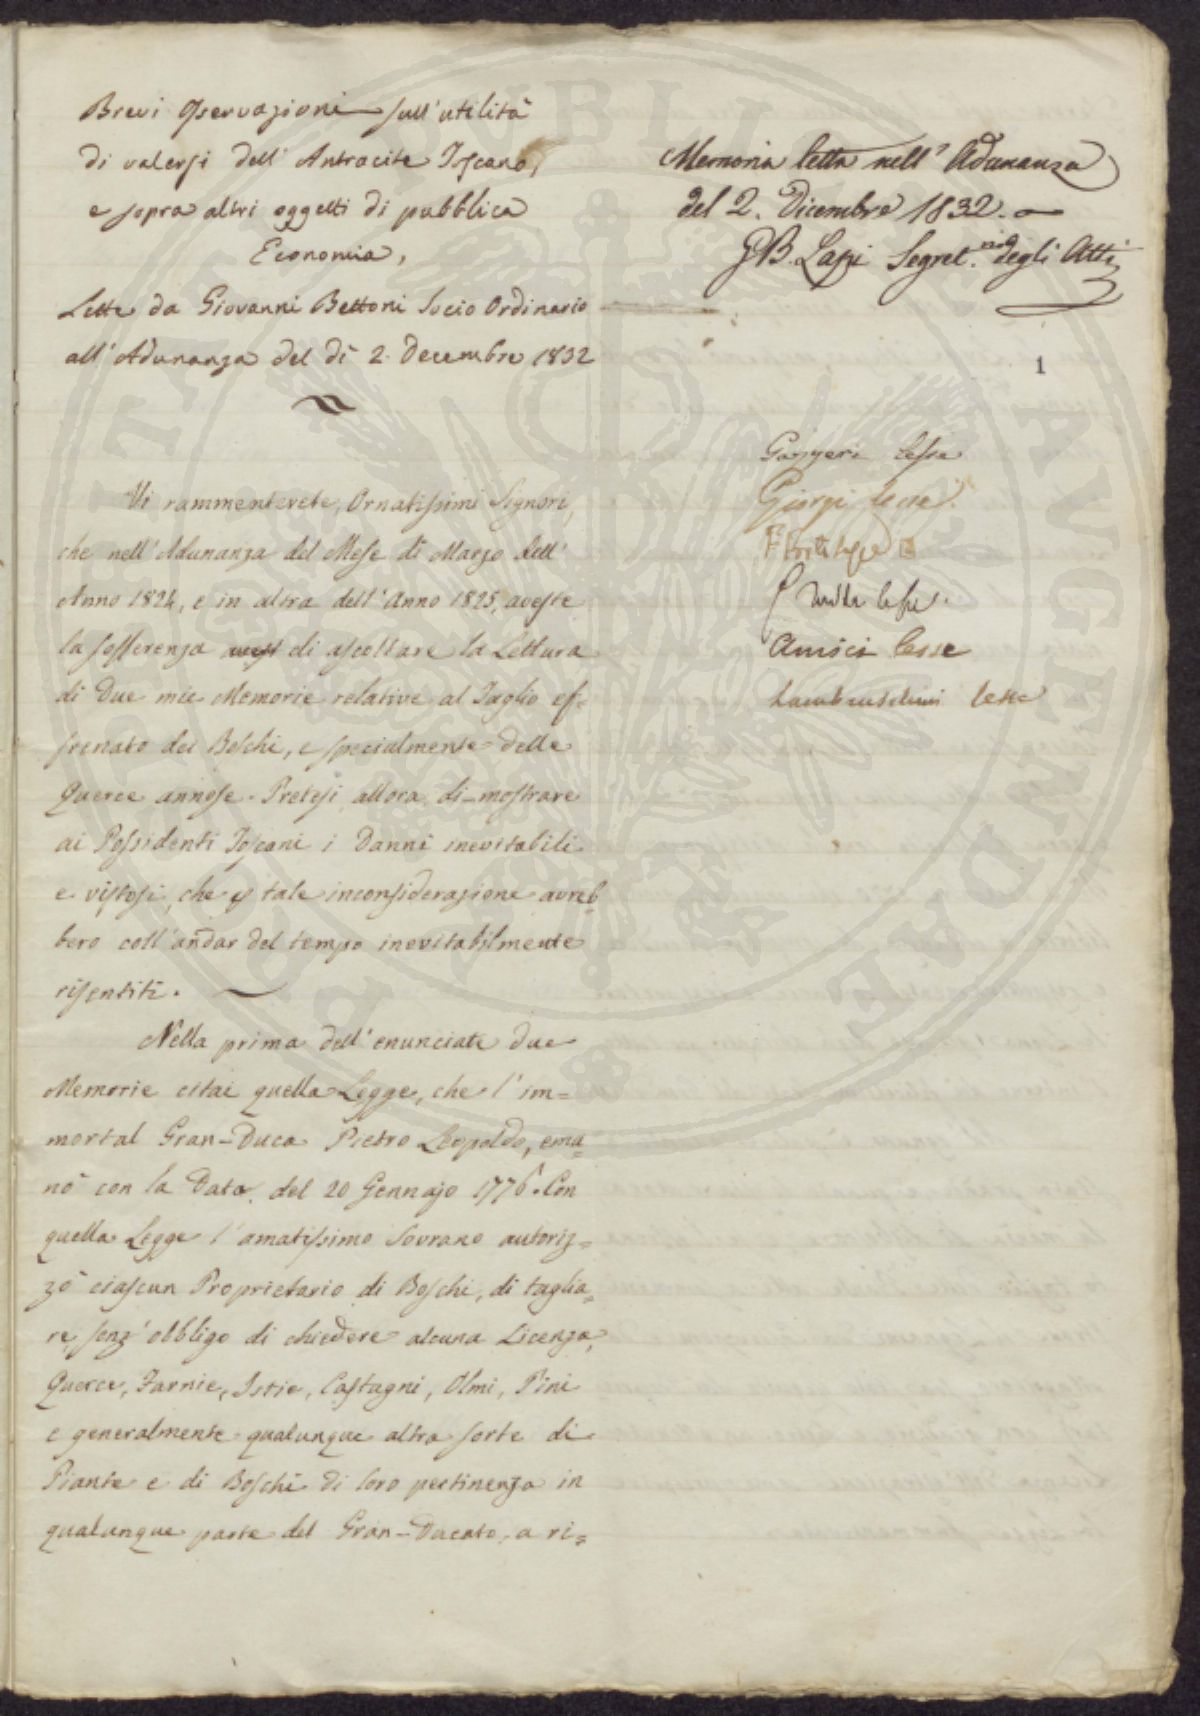 Brevi Osservazioni sull'utilità
di valersi dell'Antracite Toscano,
e sopra altri oggetti di pubblica
Economia,
Lette da Giovanni Bettoni Socio Ordinario
all'Adunanza del dì 2. Decembre 1832
Memoria letta nell'Adunanza
del 2. Dicembre 1832.
G B. Lapi Segret.rio degli Atti
1
Gazzeri lesse
Giorgi lesse.
lesse
lesse.
Amici lesse
Lambruschini lesse
Vi rammenterete, Ornatissimi Signori,
che nell'Adunanza del Mese di Marzo dell'
Anno 1824, e in altra dell'Anno 1825, aveste
la sofferenza di ascoltare la Lettura
di Due mie Memorie relative al Taglio ef-
frenato dei Boschi, e specialmente delle
Querce annose. Pretesi allora di-mostrare
ai Possidenti Toscani i Danni inevitabili
e vistosi, che tale inconsiderazione avreb-
bero coll'andar del tempo inevitabilmente
risentiti.
Nella prima dell'enunciate due
Memorie citai quella Legge, che l'im=
mortal Gran-Duca Pietro Leopoldo, ema=
nò con la Data del 20 Gennajo 1776. Con
quella Legge l'amatissimo Sovrano autoriz=
zò ciascun Proprietario di Boschi, di taglia=
re, senz'obbligo di chiedere alcuna Licenza,
Querce, Farnie, Istie, Castagni, Olmi, Pini
e generalmente qualunque altra sorte di
Piante e di Boschi di loro pertinenza in
qualunque parte del Gran-Ducato, a ri=